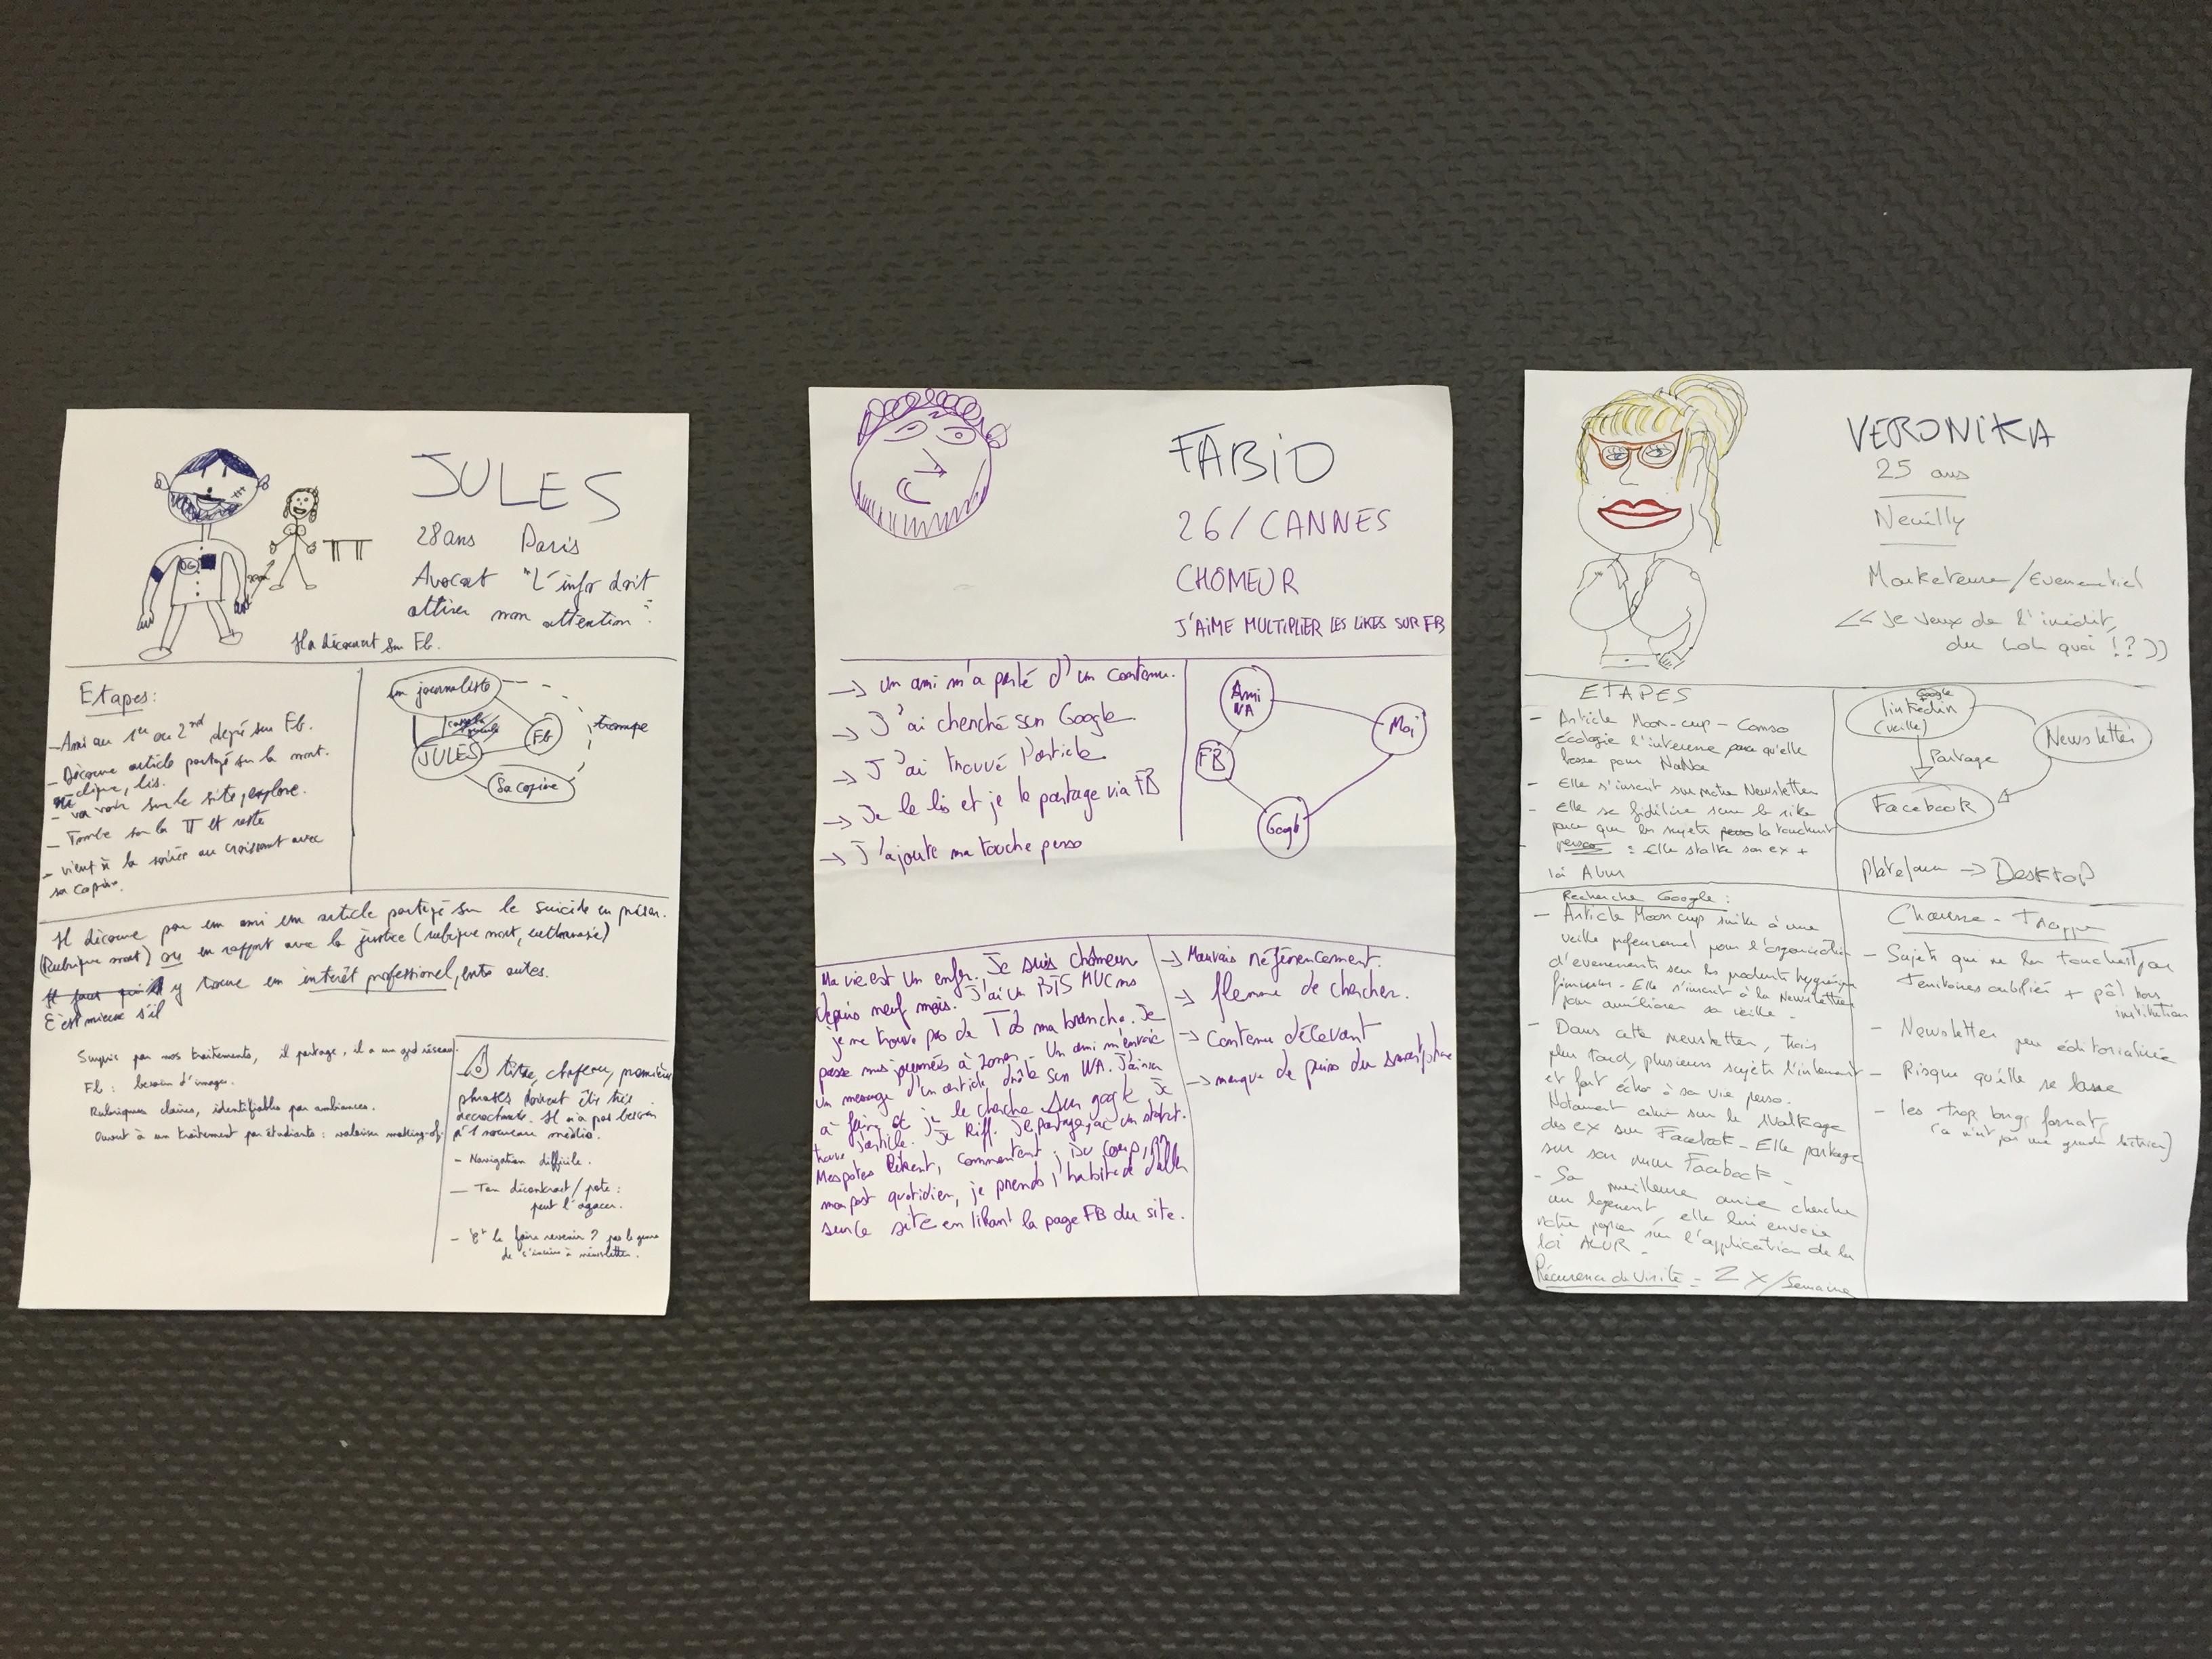 JULES
28 ans Paris
Avocat "L'info doit
attirer mon attention".
Il a découvert sur Fb.
Etapes:
- Ami au 1er ou 2nd degré sur Fb.
- Découvre article partagé sur la mort.
clique, lis.
- va voir sur le site, explore.
- Tombe sur la TT et reste
- vient à la soirée au croissant avec
sa copine.
un journaliste
Fb
trompe
JULES
Sa copine
Il découvre par un ami un article partagé sur le suicide en prison.
(Rubrique mort) ou en rapport avec la justice (rubrique mort, euthanasie)
Il faut qu'il y trouve un intérêt professionnel, entre autes.
C'est mieux s'il
Surpris par nos traitements, il partage, il a un grd réseau.
Fb : besoin d'images.
Rubriques claires, identifiables par ambiances.
Ouvert à un traitement par étudiants : valoriser making-of.
titre, chapeau, premières
phrases doivent être très
accrochants. Il n'a pas besoin
d'1 nouveau média.
- Navigation difficile.
- Ton décontract/pote :
peut l'agacer.
- le faire revenir ? pas le genre
de s'inscrire à newsletter.
FABIO
26/CANNES
CHÔMEUR
J'AIME MULTIPLIER LES LIKES SUR FB
→ un ami m'a parlé d'un contenu.
→ J'ai cherché sur Google
→ J'ai trouvé l'article
→ Je le lis et je le partage via FB
→ J'ajoute ma touche perso
Ami
WA
Moi
FB
Googl
Ma vie est un enfer. Je suis chômeur
depuis neuf mois. J'ai un BTS MUC mais
je ne trouve pas de Taf dans ma branche. Je
passe mes journées à zoner. Un ami m'envoie
un message d'un article drôle sur WA. J'ai rien
à faire et je le cherche sur google, je
trouve l'article. Je kiff. Je partage, j'ai un statut.
Mes potes likent, commentent. Du coup,
mon post quotidien, je prends l'habitude d'aller
sur le site en likant la page FB du site.
→ Mauvais référencement.
→ flemme de chercher.
→ Contenu décevant
→ manque de puiss du smartphone
VERONIKA
25 ans
Neuilly
Marketeuse/Evenementiel
<< Je veux de l'inédit,
du lol quoi !? >>
ETAPES
- Article Moon-cup - Conso
écologie l'intéresse pour qu'elle
bosse pour NaNa
- Elle s'inscrit sur notre Newsletter
- Elle se fidélise sur le site
parce que les sujets perso la touchent
perso : Elle stalke son ex +
loi Alur
Google
+
linkedin
(veille)
Newsletter
Partage
Facebook
Plateforme → Desktop
Recherche Google :
- Article Moon cup suite à une
veille professionnel pour l'organisation
d'evenements sur les produits hygiénique
féminins - Elle s'inscrit à la Newsletter
pour améliorer sa veille -
- Dans cette newsletter, trois
plus tard, plusieurs sujets l'intéressent
et font écho à sa vie perso.
Notament celui sur le stalkage
des ex sur Facebook - Elle partage
sur son mur Facebook -
- Sa meilleure amie cherche
un logement, elle lui envoie
notre papier sur l'application de la
loi ALUR -
Récurence de Visite = 2 x/semaine
Chausse-Trappe
- Sujets qui ne la touchent pas
Territoires oubliés + pôl hors
institution
- Newsletter peu éditorialisée
- Risque qu'elle se lasse
- les trop longs formats
(ce n'est pas une grande lectrice)